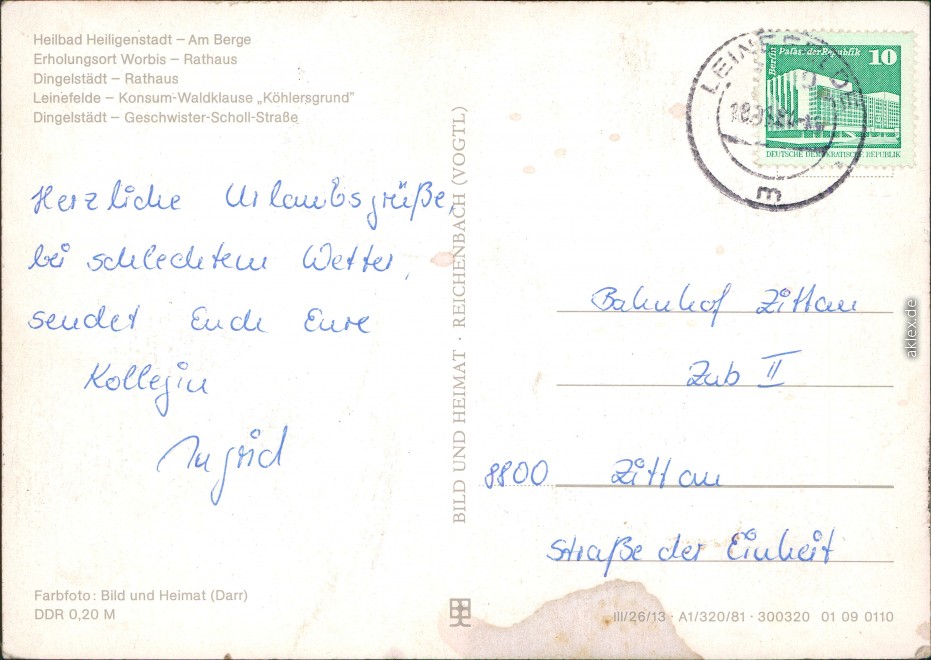 Heilbad Heiligenstadt – Am Berge
Erholungsort Worbis – Rathaus
Dingelstädt – Rathaus
Leinefelde – Konsum-Waldklause „Köhlersgrund"
Dingelstädt – Geschwister-Scholl-Straße
Herzliche Urlaubsgrüße,
bei schlechtem Wetter,
sendet Euch Eure
Kollegin
Ingrid
Farbfoto: Bild und Heimat (Darr)
DDR 0,20 M
BILD UND HEIMAT · REICHENBACH (VOGTL)
LEINEFELDE
m
Berlin Palast der Republik 10
DEUTSCHE DEMOKRATISCHE REPUBLIK
Bahnhof Zittau
Zub II
8800 Zittau
Straße der Einheit
III/26/13 · A1/320/81 · 300320 01 09 0110
aklex.de